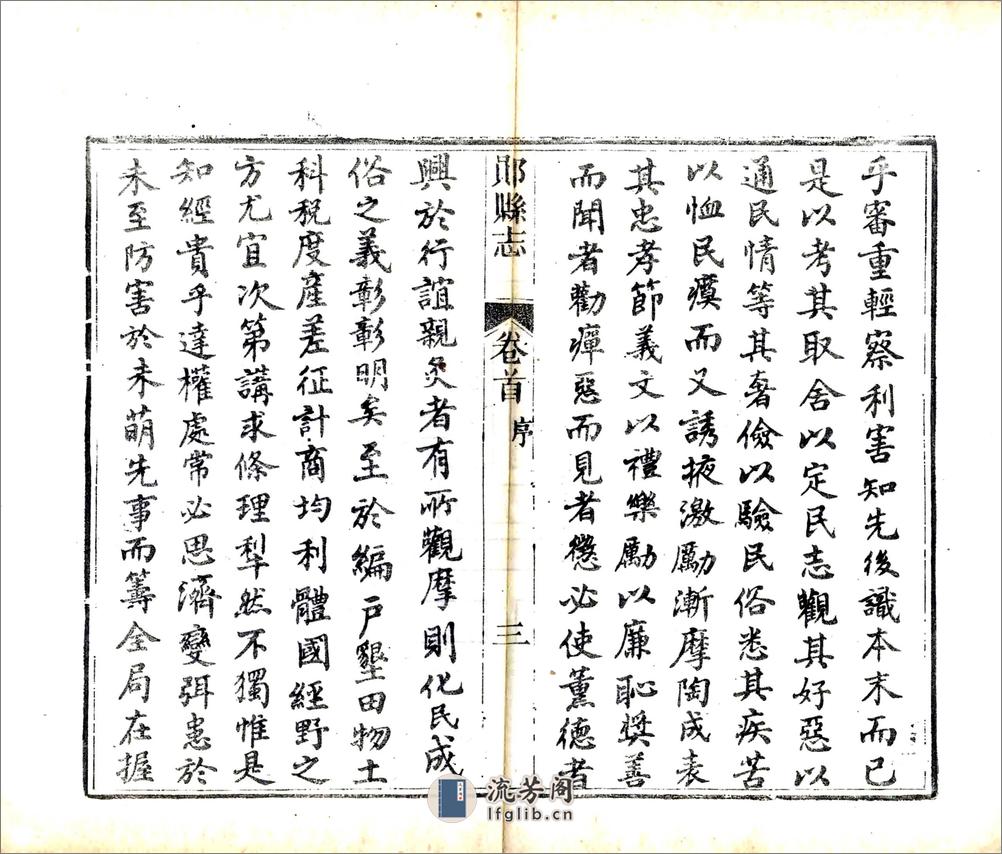 乎審重輕察利害知先後識本末而已
是以考其取舍以定民志觀其好惡以
通民情等其奢儉以驗民俗悉其疾苦
以恤民瘼而又誘掖激勵漸摩陶成表
其忠孝節義文以禮樂勵以廉恥奬善
而聞者勸癉惡而見者懲必使薰德者
鄖縣志
卷首
序
三
興於行誼親炙者有所觀摩則化民成
俗之義彰彰明矣至於編戸墾田物土
科稅度產差征計商均利體國經野之
方尤宜次第講求條理犁然不獨惟是
知經貴乎達權處常必思濟變弭患於
未至防害於未萌先事而籌全局在握
流芳阁
lfglib.cn